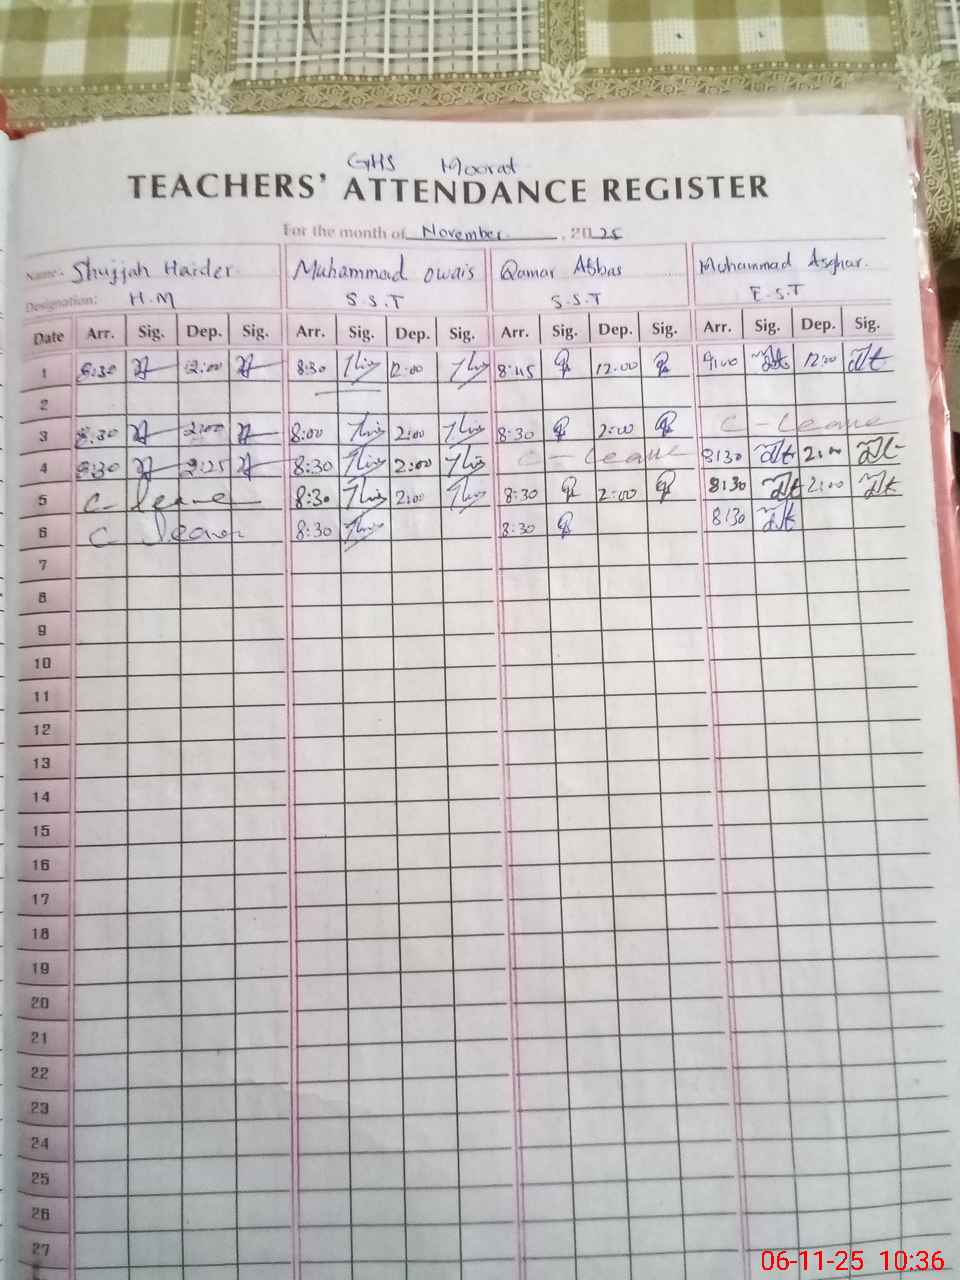 GHS Moorat
TEACHERS' ATTENDANCE REGISTER
For the month of November, 2025
Name:- Shujjah Haider Muhammad Owais Qamar Abbas Muhammad Asghar.
Designation: H.M S.S.T S.S.T E.S.T
Date Arr. Sig. Dep. Sig. Arr. Sig. Dep. Sig. Arr. Sig. Dep. Sig. Arr. Sig. Dep. Sig.
1 8:30 12:00 8:30 12:00 8:45 12:00 9:00 12:00
2
3 8:30 2:00 8:00 2:00 8:30 2:00 C - Leave
4 8:30 2:25 8:30 2:00 C - Leave 8:30 2:00
5 C- leave 8:30 2:00 8:30 2:00 8:30 2:00
6 C Leave 8:30 8:30 8:30
7
8
9
10
11
12
13
14
15
16
17
18
19
20
21
22
23
24
25
26
27
06-11-25 10:36